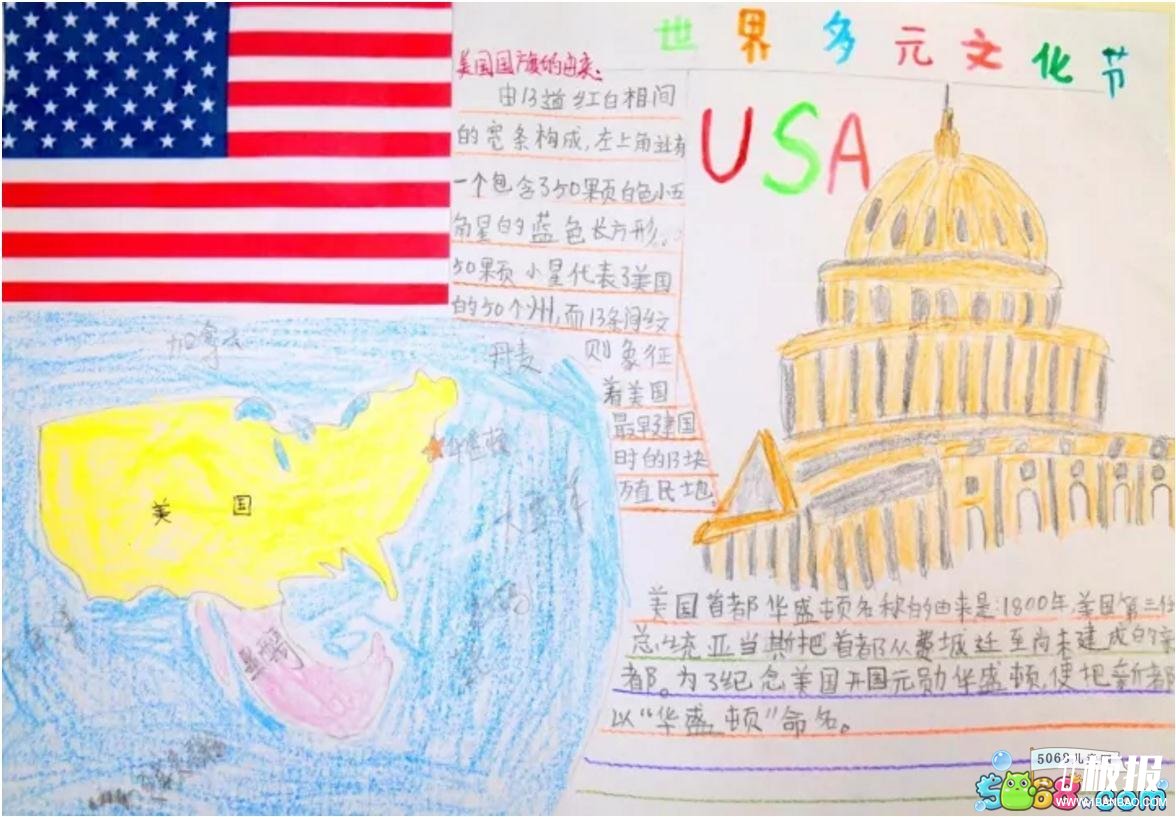 世界多元文化节
USA
美国国旗的由来:
由13道红白相间
的宽条构成,左上角还有
一个包含了50颗白色小五
角星的蓝色长方形。
50颗小星代表了美国
的50个州,而13条间纹
则象征
着美国
最早建国
时的13块
殖民地。
加拿大
丹麦
华盛顿
美国
墨西哥
美国首都华盛顿名称的由来是:1800年,美国第三任
总统亚当斯把首都从费城迁至尚未建成的
都。为了纪念美国开国元勋华盛顿,便把新都
以“华盛顿”命名。
5068儿童网
5068.com
极报
WWW.1BANBAO.COM